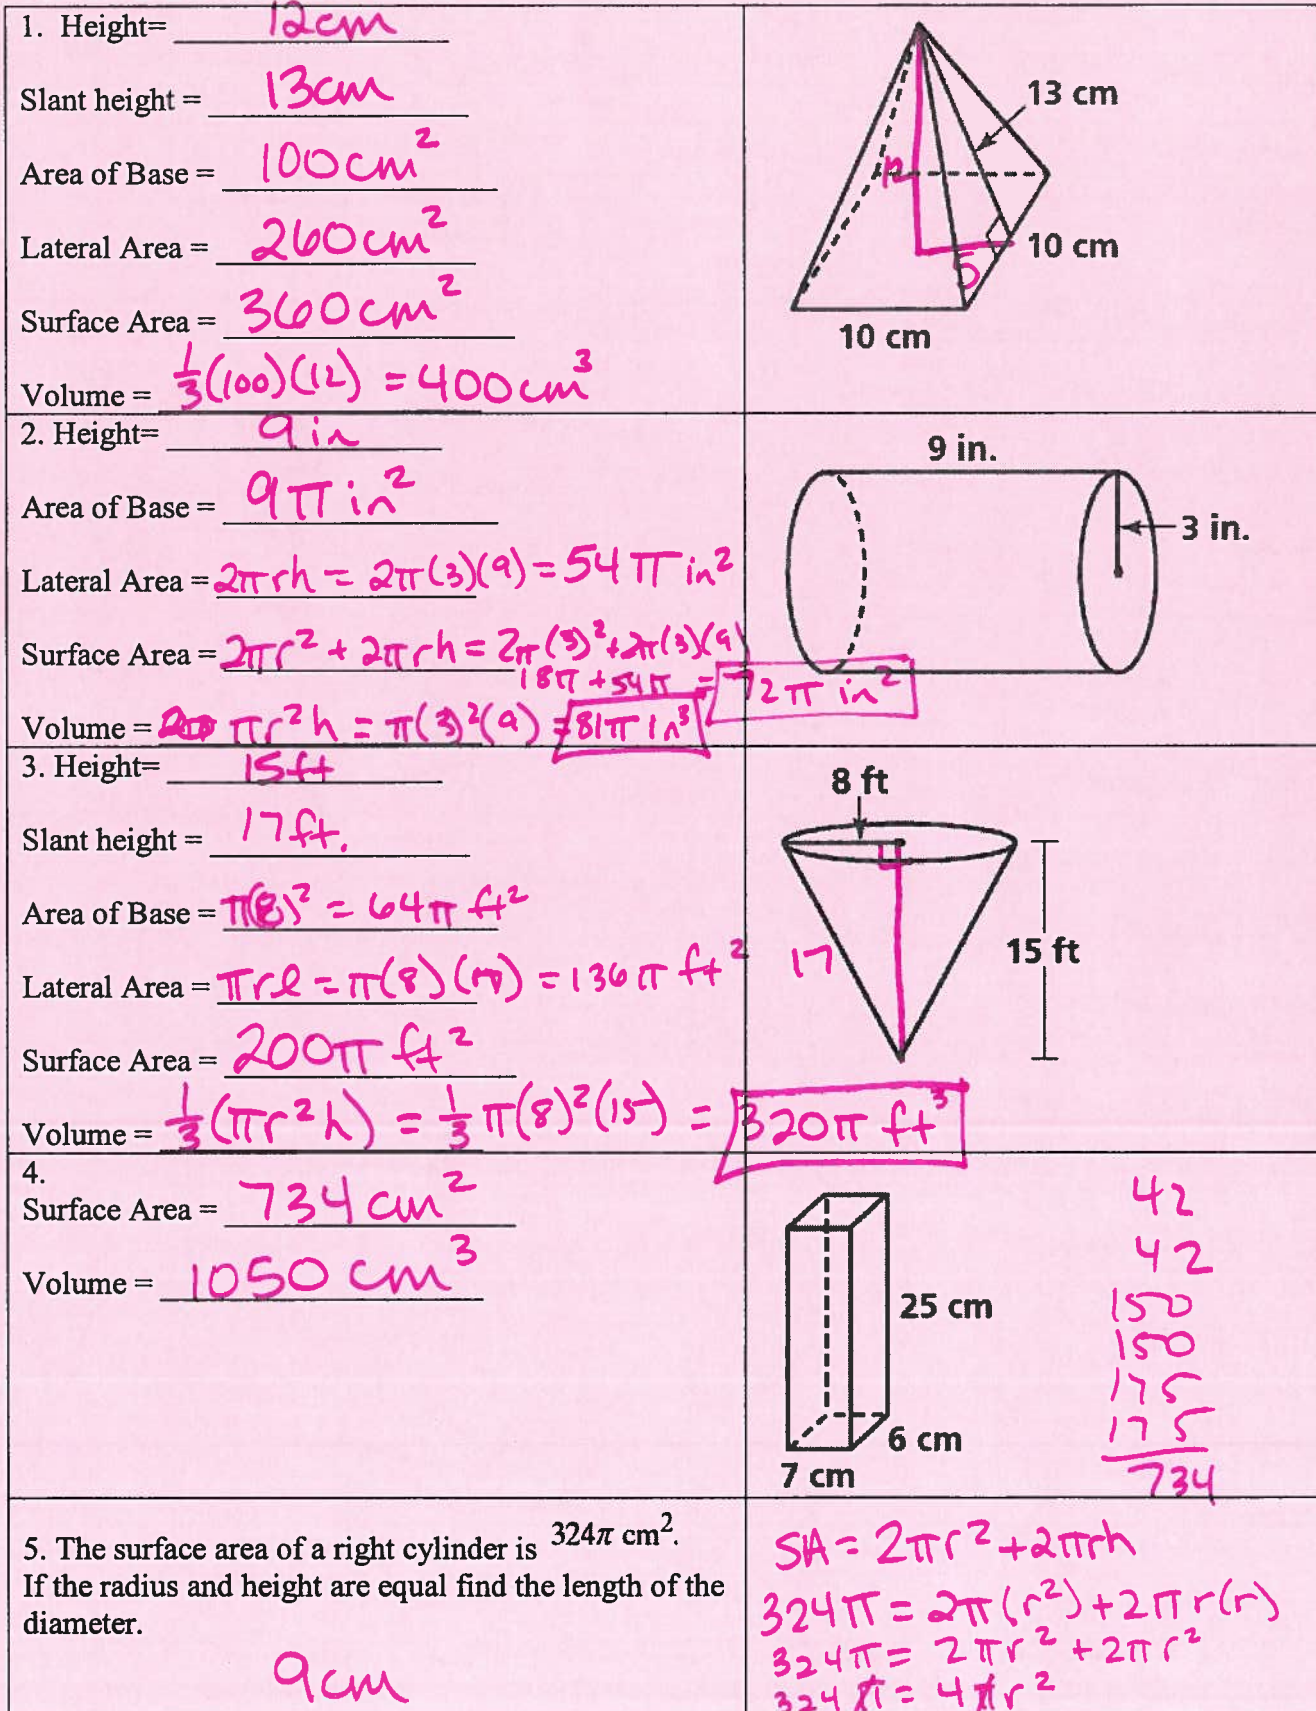 1. Height= 12cm
Slant height = 13cm
Area of Base = 100cm²
Lateral Area = 260cm²
Surface Area = 360cm²
Volume = 1/3(100)(12) = 400cm³
13 cm
12
5
10 cm
10 cm
2. Height= 9 in
Area of Base = 9π in²
Lateral Area = 2πrh = 2π(3)(9) = 54π in²
Surface Area = 2πr² + 2πrh = 2π(3)² + 2π(3)(9)
18π + 54π = 72π in²
Volume = πr²h = π(3)²(9) = 81π in³
9 in.
3 in.
3. Height= 15ft
Slant height = 17ft.
Area of Base = π(8)² = 64π ft²
Lateral Area = πrl = π(8)(17) = 136π ft²
Surface Area = 200π ft²
Volume = 1/3(πr²h) = 1/3π(8)²(15) = 320π ft³
8 ft
17
15 ft
4.
Surface Area = 734 cm²
Volume = 1050 cm³
25 cm
6 cm
7 cm
42
42
150
150
175
175
734
5. The surface area of a right cylinder is 324π cm².
If the radius and height are equal find the length of the
diameter.
9cm
SA = 2πr² + 2πrh
324π = 2π(r²) + 2πr(r)
324π = 2πr² + 2πr²
324π = 4πr²